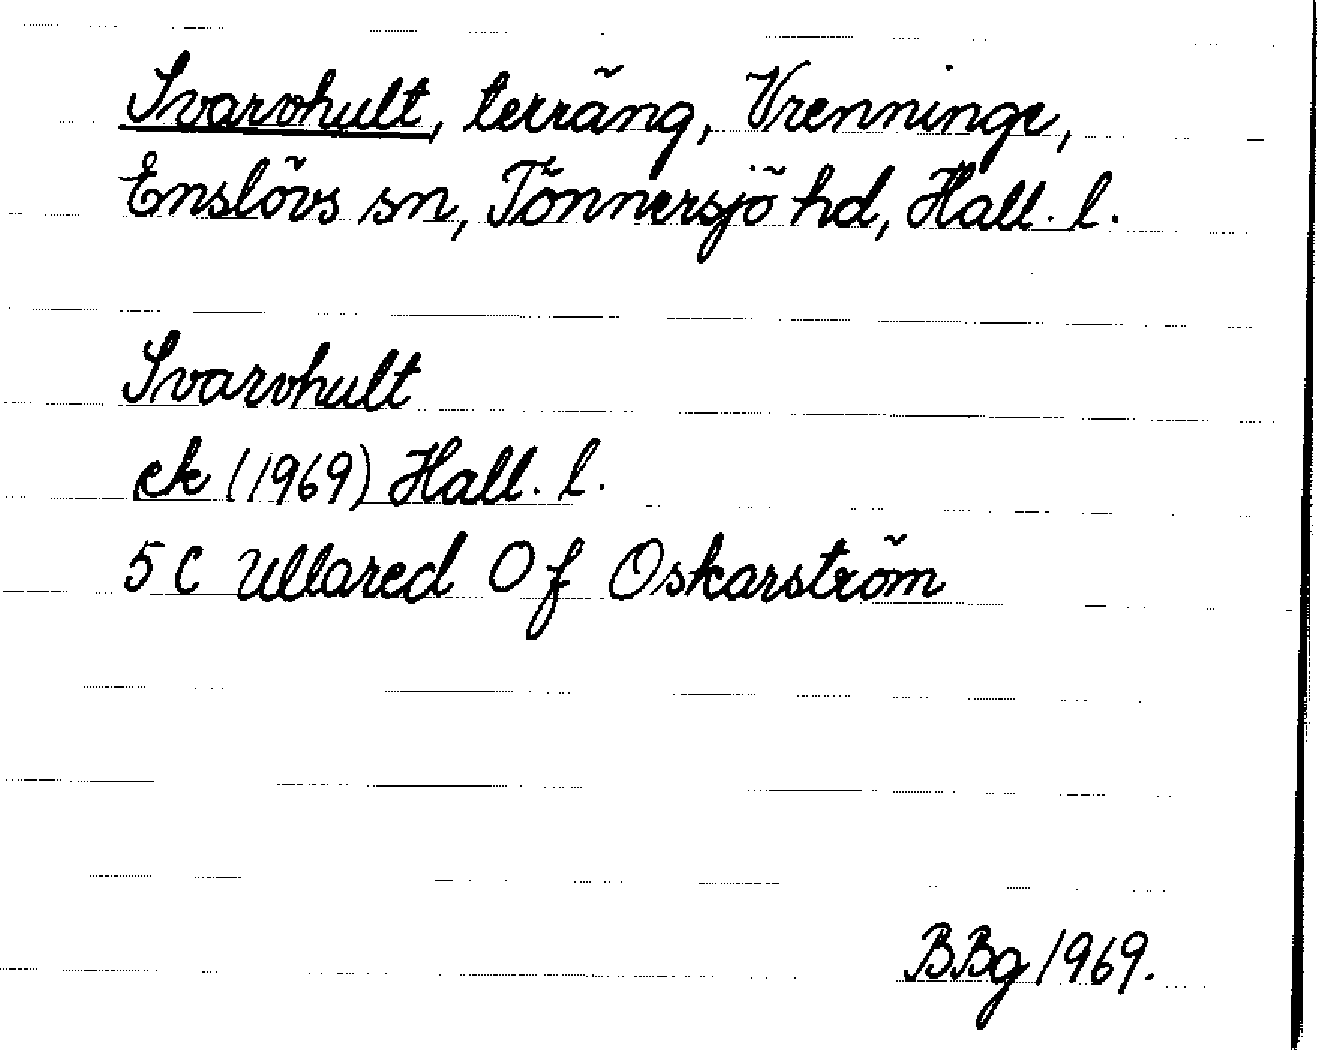 Svarvhult, terräng, Vrenninge,
Enslövs sn, Tönnersjö hd, Hall. l.
Svarvhult
ek (1969) Hall. l.
5 C Ullared 0 f Oskarström
BBg 1969.